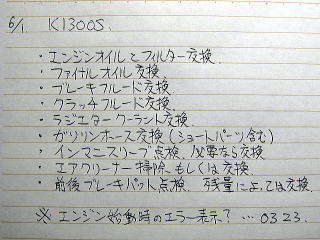 6/1 K1300S.
・エンジンオイルとフィルター交換
・ファイナルオイル交換.
・ブレーキフルード交換.
・クラッチフルード交換.
・ラジエタークーラント交換.
・ガソリンホース交換(ショートパーツ含む)
・インマニスリーブ点検.必要なら交換
・エアクリーナー掃除.もしくは交換.
・前後ブレーキパット点検.残量によっては交換.
※エンジン始動時のエラー表示?…0323.